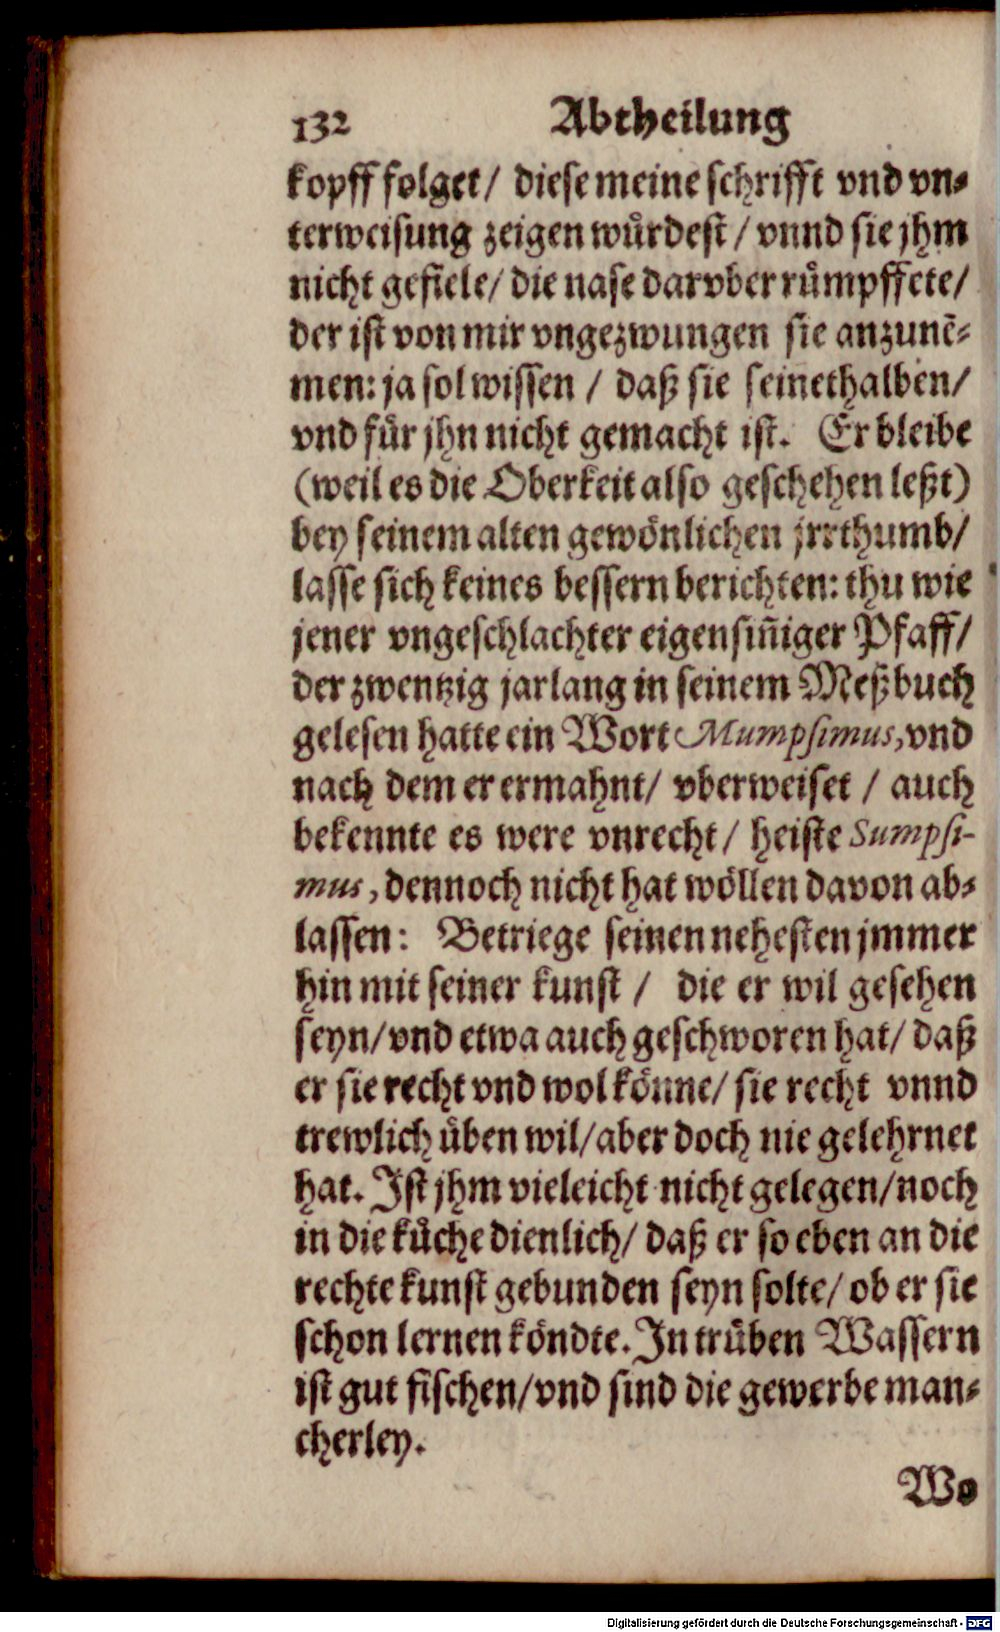 132 Abtheilung
kopff folget/ diese meine schrifft vnd vn⸗
terweisung zeigen wuͤrdest / vnnd sie jhm
nicht gefiele/ die nase darvber ruͤmpffete/
der ist von mir vngezwungen sie anzunē⸗
men: ja sol wissen / daß sie seinethalben/
vnd fuͤr jhn nicht gemacht ist. Er bleibe
(weil es die Oberkeit also geschehen leßt)
bey seinem alten gewoͤnlichen jrrthumb/
lasse sich keines bessern berichten: thu wie
jener vngeschlachter eigensiñiger Pfaff/
der zwentzig jar lang in seinem Meßbuch
gelesen hatte ein Wort Mumpsimus, vnd
nach dem er ermahnt/ vberweiset / auch
bekennte es were vnrecht/ heiste Sumpsi-
mus, dennoch nicht hat woͤllen davon ab⸗
lassen: Betriege seinen nehesten jmmer
hin mit seiner kunst / die er wil gesehen
seyn/ vnd etwa auch geschworen hat/ daß
er sie recht vnd wol koͤnne/ sie recht vnnd
trewlich uͤben wil/ aber doch nie gelehrnet
hat. Ist jhm vieleicht nicht gelegen/ noch
in die kuͤche dienlich/ daß er so eben an die
rechte kunst gebunden seyn solte/ ob er sie
schon lernen koͤndte. In truͤben Wassern
ist gut fischen/ vnd sind die gewerbe man⸗
cherley.
Wo
Digitalisierung gefördert durch die Deutsche Forschungsgemeinschaft - DFG